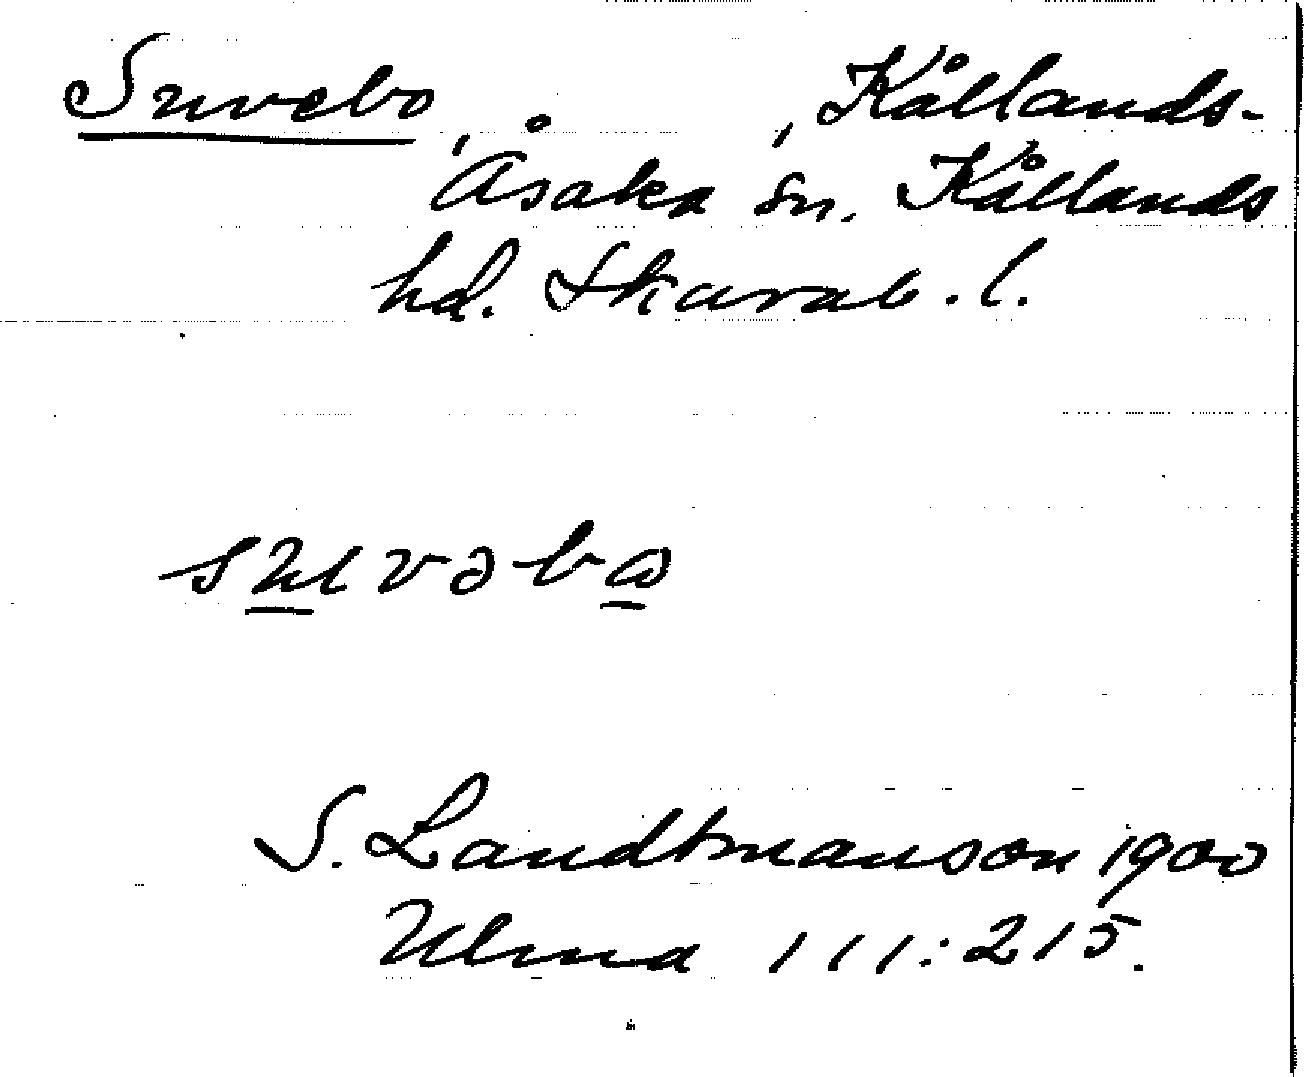 Suvebo, , Kållands-
Åsaka sn. Kållands
hd. Skarab. l.
S. Landtmanson 1900
Ulma 111:215.